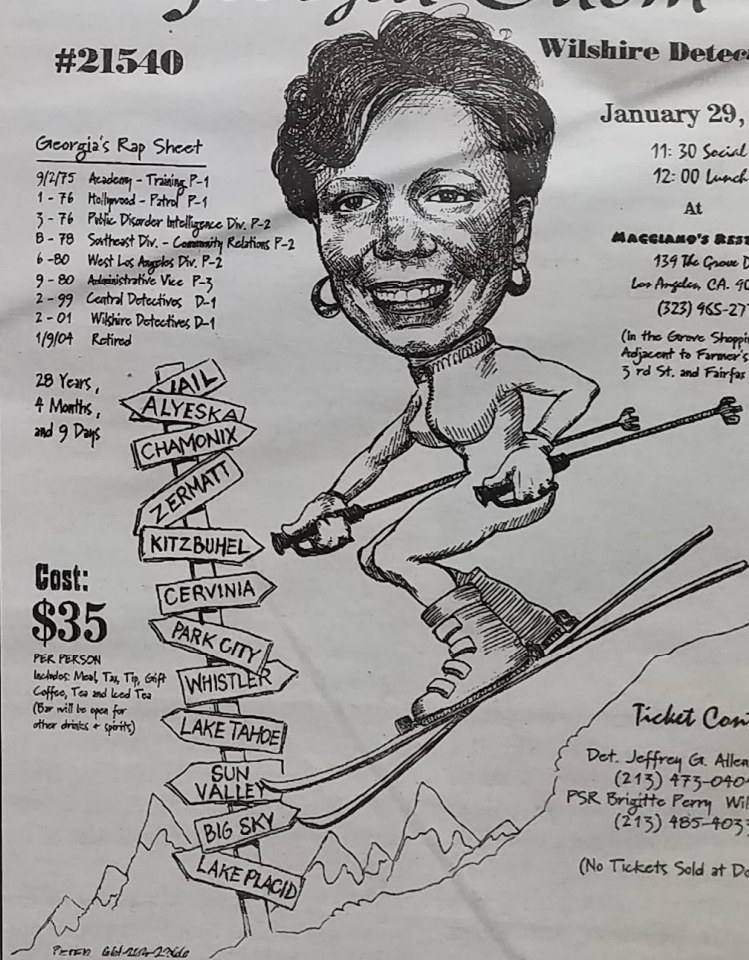 #21540
Wilshire
January 29,
11:30 Social
12:00 Lunch
At
139 The Grove
Los Angeles, CA.
(323) 965-27
(In the Grove
Adjacent to Farmer's
3 rd St. and Fairfax
Georgia's Rap Sheet
9/2/75 Academy - Training P-1
1 - 76 Hollywood - Patrol P-1
3 - 76 Public Disorder Intelligence Div. P-2
8 - 78 Southeast Div. - Community Relations P-2
6 - 80 West Los Angeles Div. P-2
9 - 80 Administrative Vice P-3
2 - 99 Central Detectives D-1
2 - 01 Wilshire Detectives D-1
1/9/04 Retired
28 Years,
4 Months,
and 9 Days
VAIL
ALYESKA
CHAMONIX
ZERMATT
KITZBUHEL
CERVINIA
PARK CITY
WHISTLER
LAKE TAHOE
SUN
VALLEY
BIG SKY
LAKE PLACID
Cost:
$35
PER PERSON
Includes: Meal, Tax, Tip, Gift
Coffee, Tea and Iced Tea
(Bar will be open for
other drinks + spirits)
Ticket
Det. Jeffrey G. Allen
(213) 473-0404
PSR Brigitte Perry
(213) 485-4033
(No Tickets Sold at